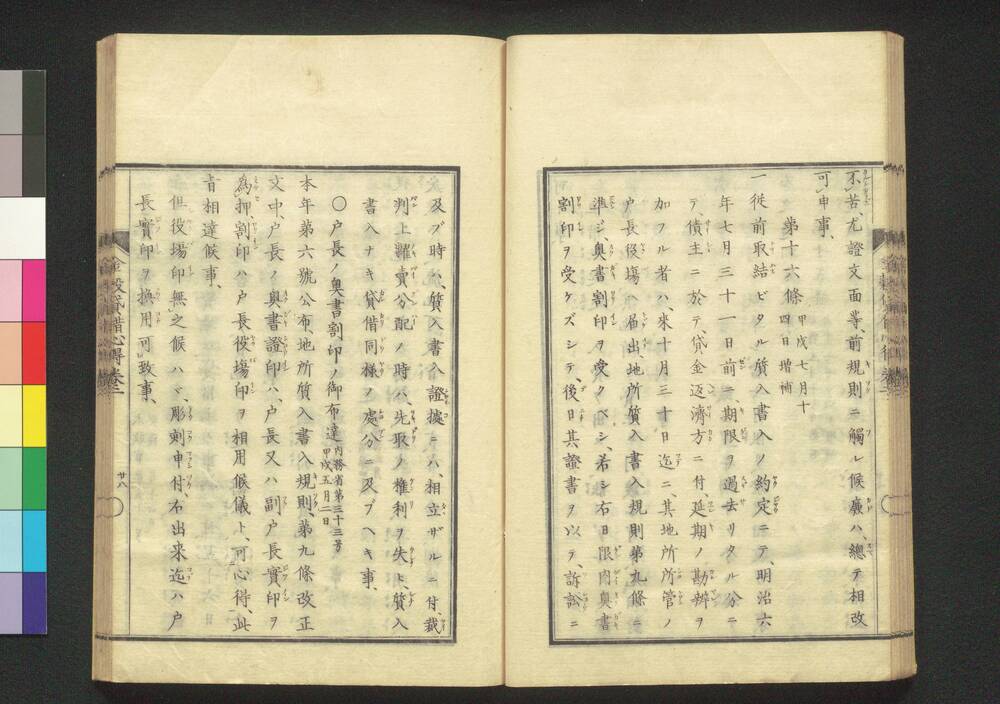 不苦、尤證文面等、前規則ニ觸レ候廉ハ、總テ相改
可申事、
第十六條 甲戌七月十四日増補
一從前取結ビタル質入書入ノ約定ニテ、明治六
年七月三十一日前ニ、期限ヲ過去リタル分ニ
テ、債主ニ於テ、貸金返濟方ニ付、延期ノ勘辨ヲ
加フル者ハ、來十月三十日迄ニ、其地所所管ノ
戸長役塲ヘ届出、地所質入書入規則第九條ニ
準ジ奥書割印ヲ受クベシ、若シ右日限内奥書
割印ヲ受ケズシテ、後日其證書ヲ以テ、訴訟ニ
及ブ時ハ、質入書入證據ニハ、相立ザルニ付、裁
判上糶賣分配ノ時ハ、先取ノ權利ヲ失ヒ、質入
書入ナキ貸借同樣ノ處分ニ及ブヘキ事、
〇戸長ノ奥書割印ノ御布達 内務省第三十三号 甲戌五月二日
本年第六號公布、地所質入書入規則、第九條改正
文中、戸長ノ奥書證印ハ、戸長又ハ副戸長實印ヲ
為押、割印ハ戸長役塲印ヲ相用候儀ト、可心得、此
旨相達候事、
但役塲印無之候ハヾ、彫刻申付、右出來迄ハ戸
長實印ヲ換用可致事、
金穀貸借心得 卷二
廿八